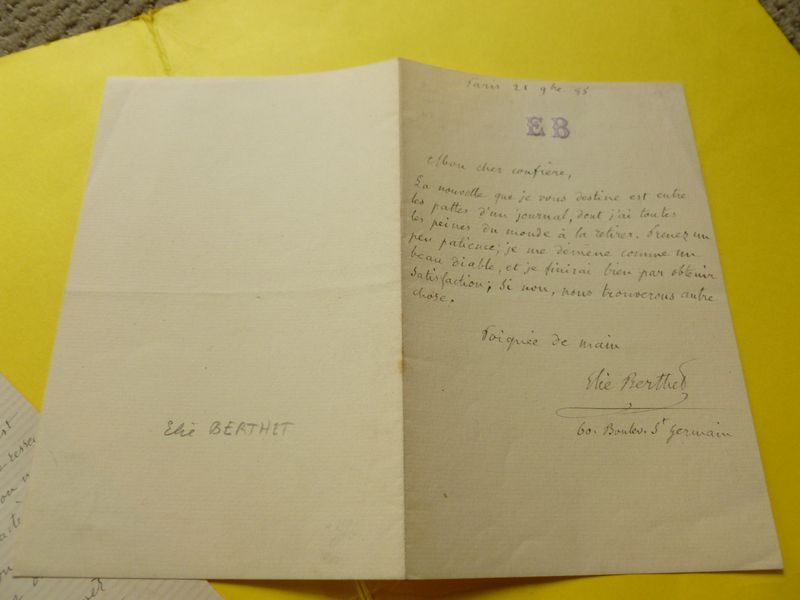 Paris 21 9bre 85
EB
Mon cher confrère,
La nouvelle que je vous destine est entre
les pattes d'un journal, dont j'ai toutes
les peines du monde à la retirer. Prenez un
peu patience; je me démène comme un
beau diable, et je finirai bien par obtenir
satisfaction; Si non, nous trouverons autre
chose.
Poignée de main
Elie Berthet
60. Boulev. St Germain
Elie BERTHET